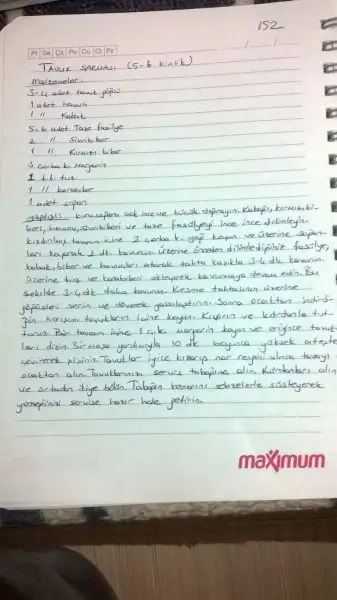 152
Pt Sa Ça Pe Cu Ct Pz
TAVUK SARMASI (5-6 kişilik)
Malzemeler.
3-4 adet tavuk göğsü
1 adet havuç
1 " Kabak
5-6 adet Taze fasulye
2 " Sivri biber
1 " Kırmızı biber
3 çorba k. Margarin
1 t.k. tuz
1 " karabiber
1 adet soğan
Yapılışı: kuru soğanı çok ince ve küçük doğrayın. Kabağı, kırmızı bi-
beri, havucu, sivri biberi ve taze fasulyeyi ince ince dilimleyin.
kızdırılmış tavanın içine 2 çorba k. yağ koyun ve üzerine soğan-
ları koyarak 1 dk. kavurun. Üzerine önceden dilimlediğiniz fasulye,
kabak, biber ve havuçları atarak tahta kaşıkla 3-4 dk. kavurun.
üzerine tuz ve karabiberi ekleyerek kavurmaya devam edin. Bu
şekilde 3-4 dk daha kavurun. Kesme tahtasının üzerine
göğüsleri serin ve döverek yassılaştırın. Sonra ocaktan indirdi-
ğin karışımı tavukların içine koyun. Kıvırın ve kürdanla tut-
turun. Bir tavanın içine 1 ç.k. margarin koyun ve eriyince tavuk-
ları dizin. Bir maşa yardımıyla 10 dk boyunca yüksek ateşte
çevirerek pişirin. Tavuklar iyice kızarıp nar rengini alınca tavayı
ocaktan alın. Tavuklarınızı servis tabağına alın. Kürdanları alın
ve ortadan ikiye bölün. Tabağın kenarını sebzelerle süsleyerek
yemeğinizi servise hazır hale getirin.
maximum